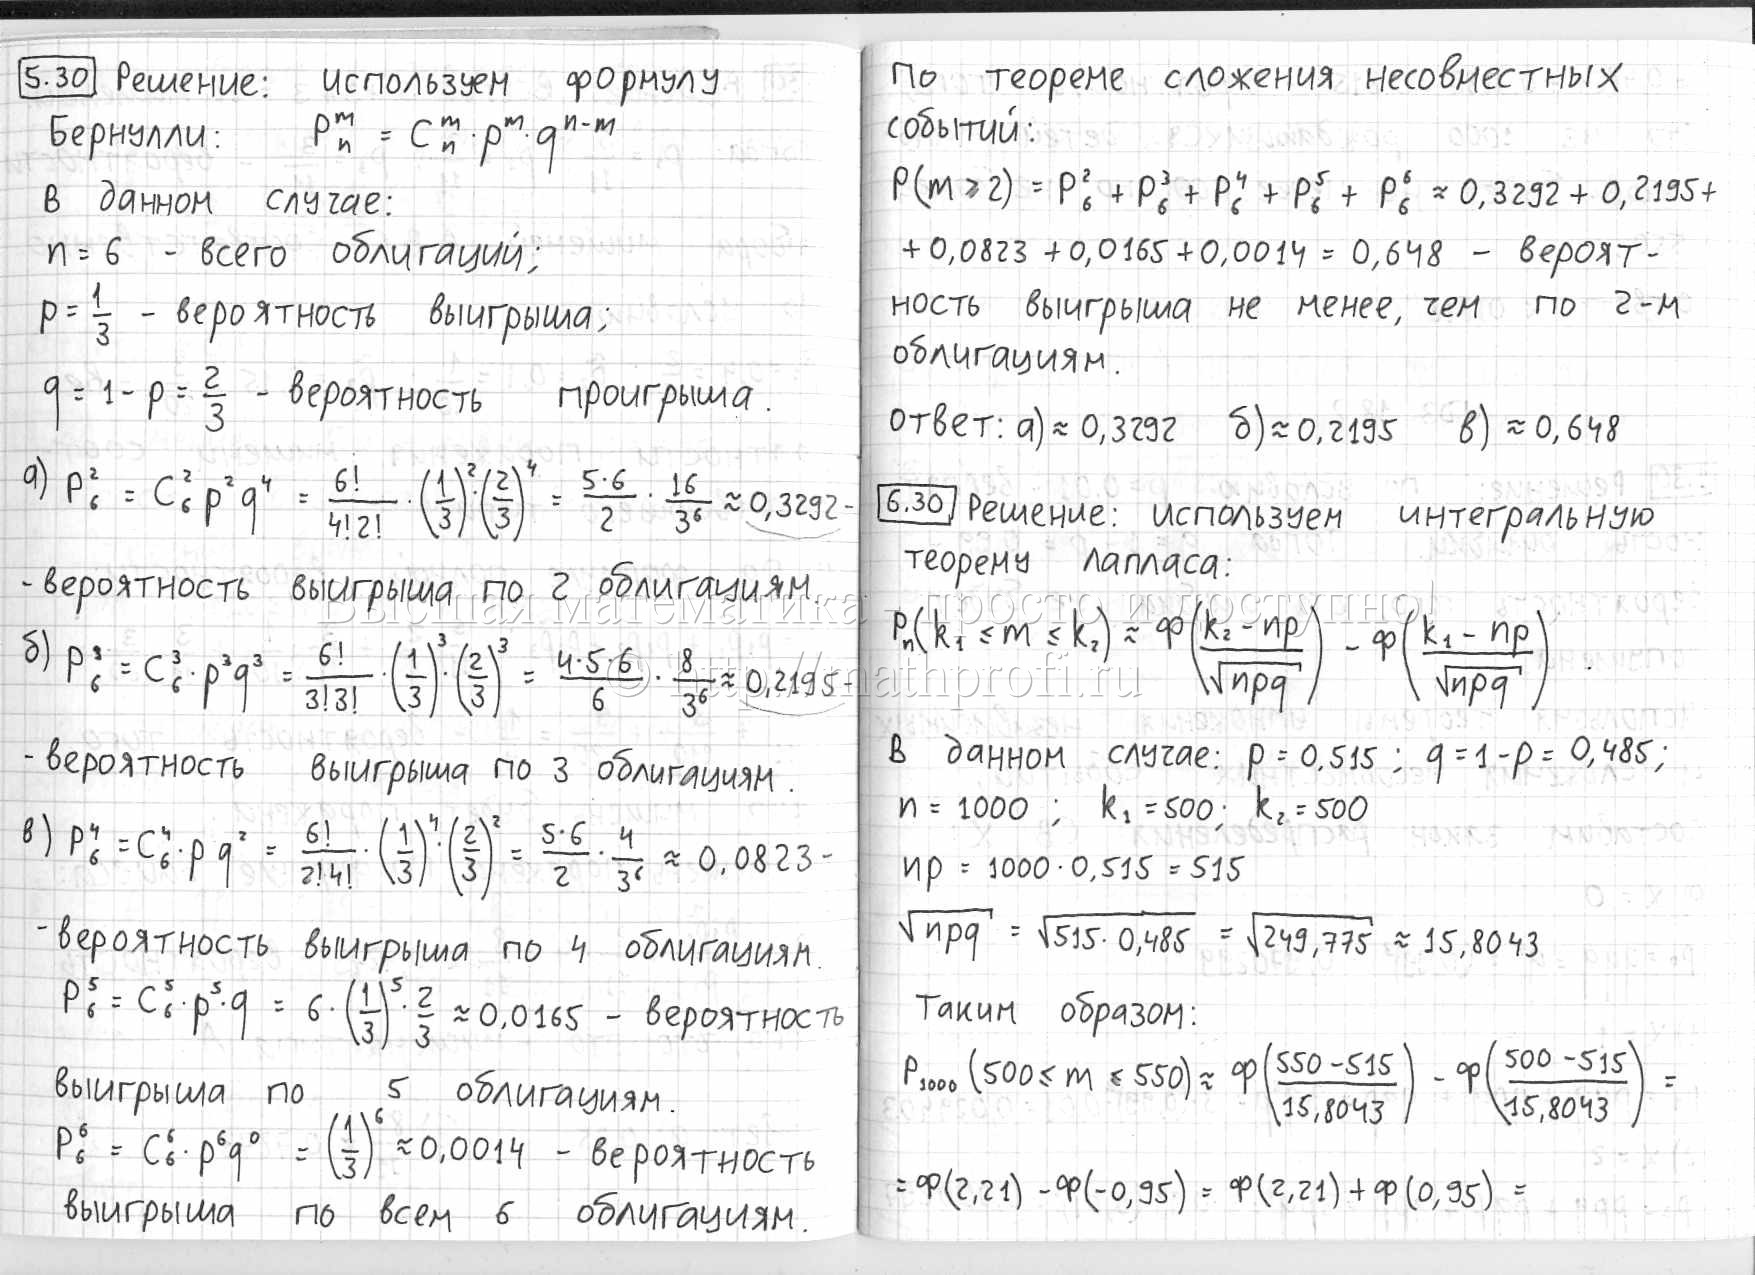 5.30 Решение: используем формулу
Бернулли: P_n^m = C_n^m · p^m · q^{n-m}
В данном случае:
n = 6 - всего облигаций;
p = 1/3 - вероятность выигрыша;
q = 1 - p = 2/3 - вероятность проигрыша.
а) P_6^2 = C_6^2 p^2 q^4 = 6!/(4!2!) · (1/3)^2 · (2/3)^4 = 5·6/2 · 16/3^6 ≈ 0,3292 -
- вероятность выигрыша по 2 облигациям.
б) P_6^3 = C_6^3 · p^3 q^3 = 6!/(3!3!) · (1/3)^3 · (2/3)^3 = 4·5·6/6 · 8/3^6 ≈ 0,2195 -
- вероятность выигрыша по 3 облигациям.
в) P_6^4 = C_6^4 · p q^2 = 6!/(2!4!) · (1/3)^4 · (2/3)^2 = 5·6/2 · 4/3^6 ≈ 0,0823 -
- вероятность выигрыша по 4 облигациям.
P_6^5 = C_6^5 · p^5 · q = 6 · (1/3)^5 · 2/3 ≈ 0,0165 - вероятность
выигрыша по 5 облигациям.
P_6^6 = C_6^6 · p^6 q^0 = (1/3)^6 ≈ 0,0014 - вероятность
выигрыша по всем 6 облигациям.
По теореме сложения несовместных
событий:
P(m ⩾ 2) = P_6^2 + P_6^3 + P_6^4 + P_6^5 + P_6^6 ≈ 0,3292 + 0,2195 +
+ 0,0823 + 0,0165 + 0,0014 = 0,648 - вероят-
ность выигрыша не менее, чем по 2-м
облигациям.
Ответ: а) ≈ 0,3292 б) ≈ 0,2195 в) ≈ 0,648
6.30 Решение: используем интегральную
теорему Лапласа:
P_n(k_1 ≤ m ≤ k_2) ≈ Ф((k_2 - np)/√npq) - Ф((k_1 - np)/√npq).
В данном случае: p = 0,515; q = 1 - p = 0,485;
n = 1000; k_1 = 500; k_2 = 500
np = 1000 · 0,515 = 515
√npq = √515 · 0,485 = √249,775 ≈ 15,8043
Таким образом:
P_1000 (500 ≤ m ≤ 550) ≈ Ф((550 - 515)/15,8043) - Ф((500 - 515)/15,8043) =
= Ф(2,21) - Ф(-0,95) = Ф(2,21) + Ф(0,95) =
Высшая математика - просто и доступно!
© http://mathprofi.ru